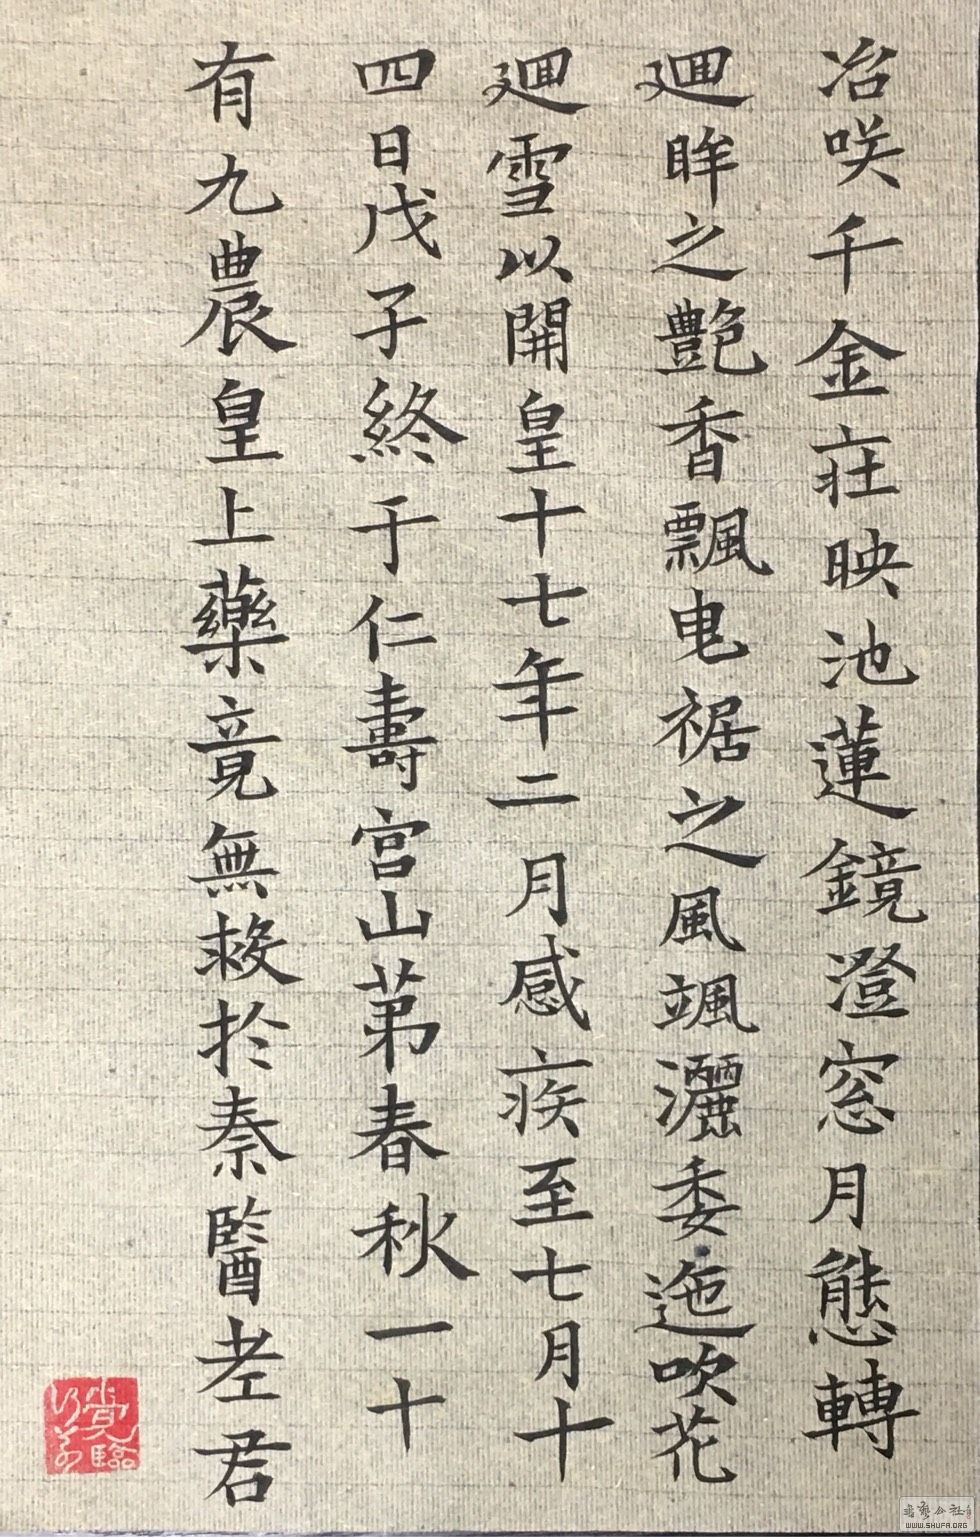 冶咲千金庄映池蓮鏡澄窓月態轉
廻眸之艷香飄曳裾之風颯灑委迤吹花
廻雪以開皇十七年二月感疾至七月十
四日戊子終于仁壽宮山苐春秋一十
有九農皇上藥竟無救於秦醫老君
WWW.SHUFA.ORG